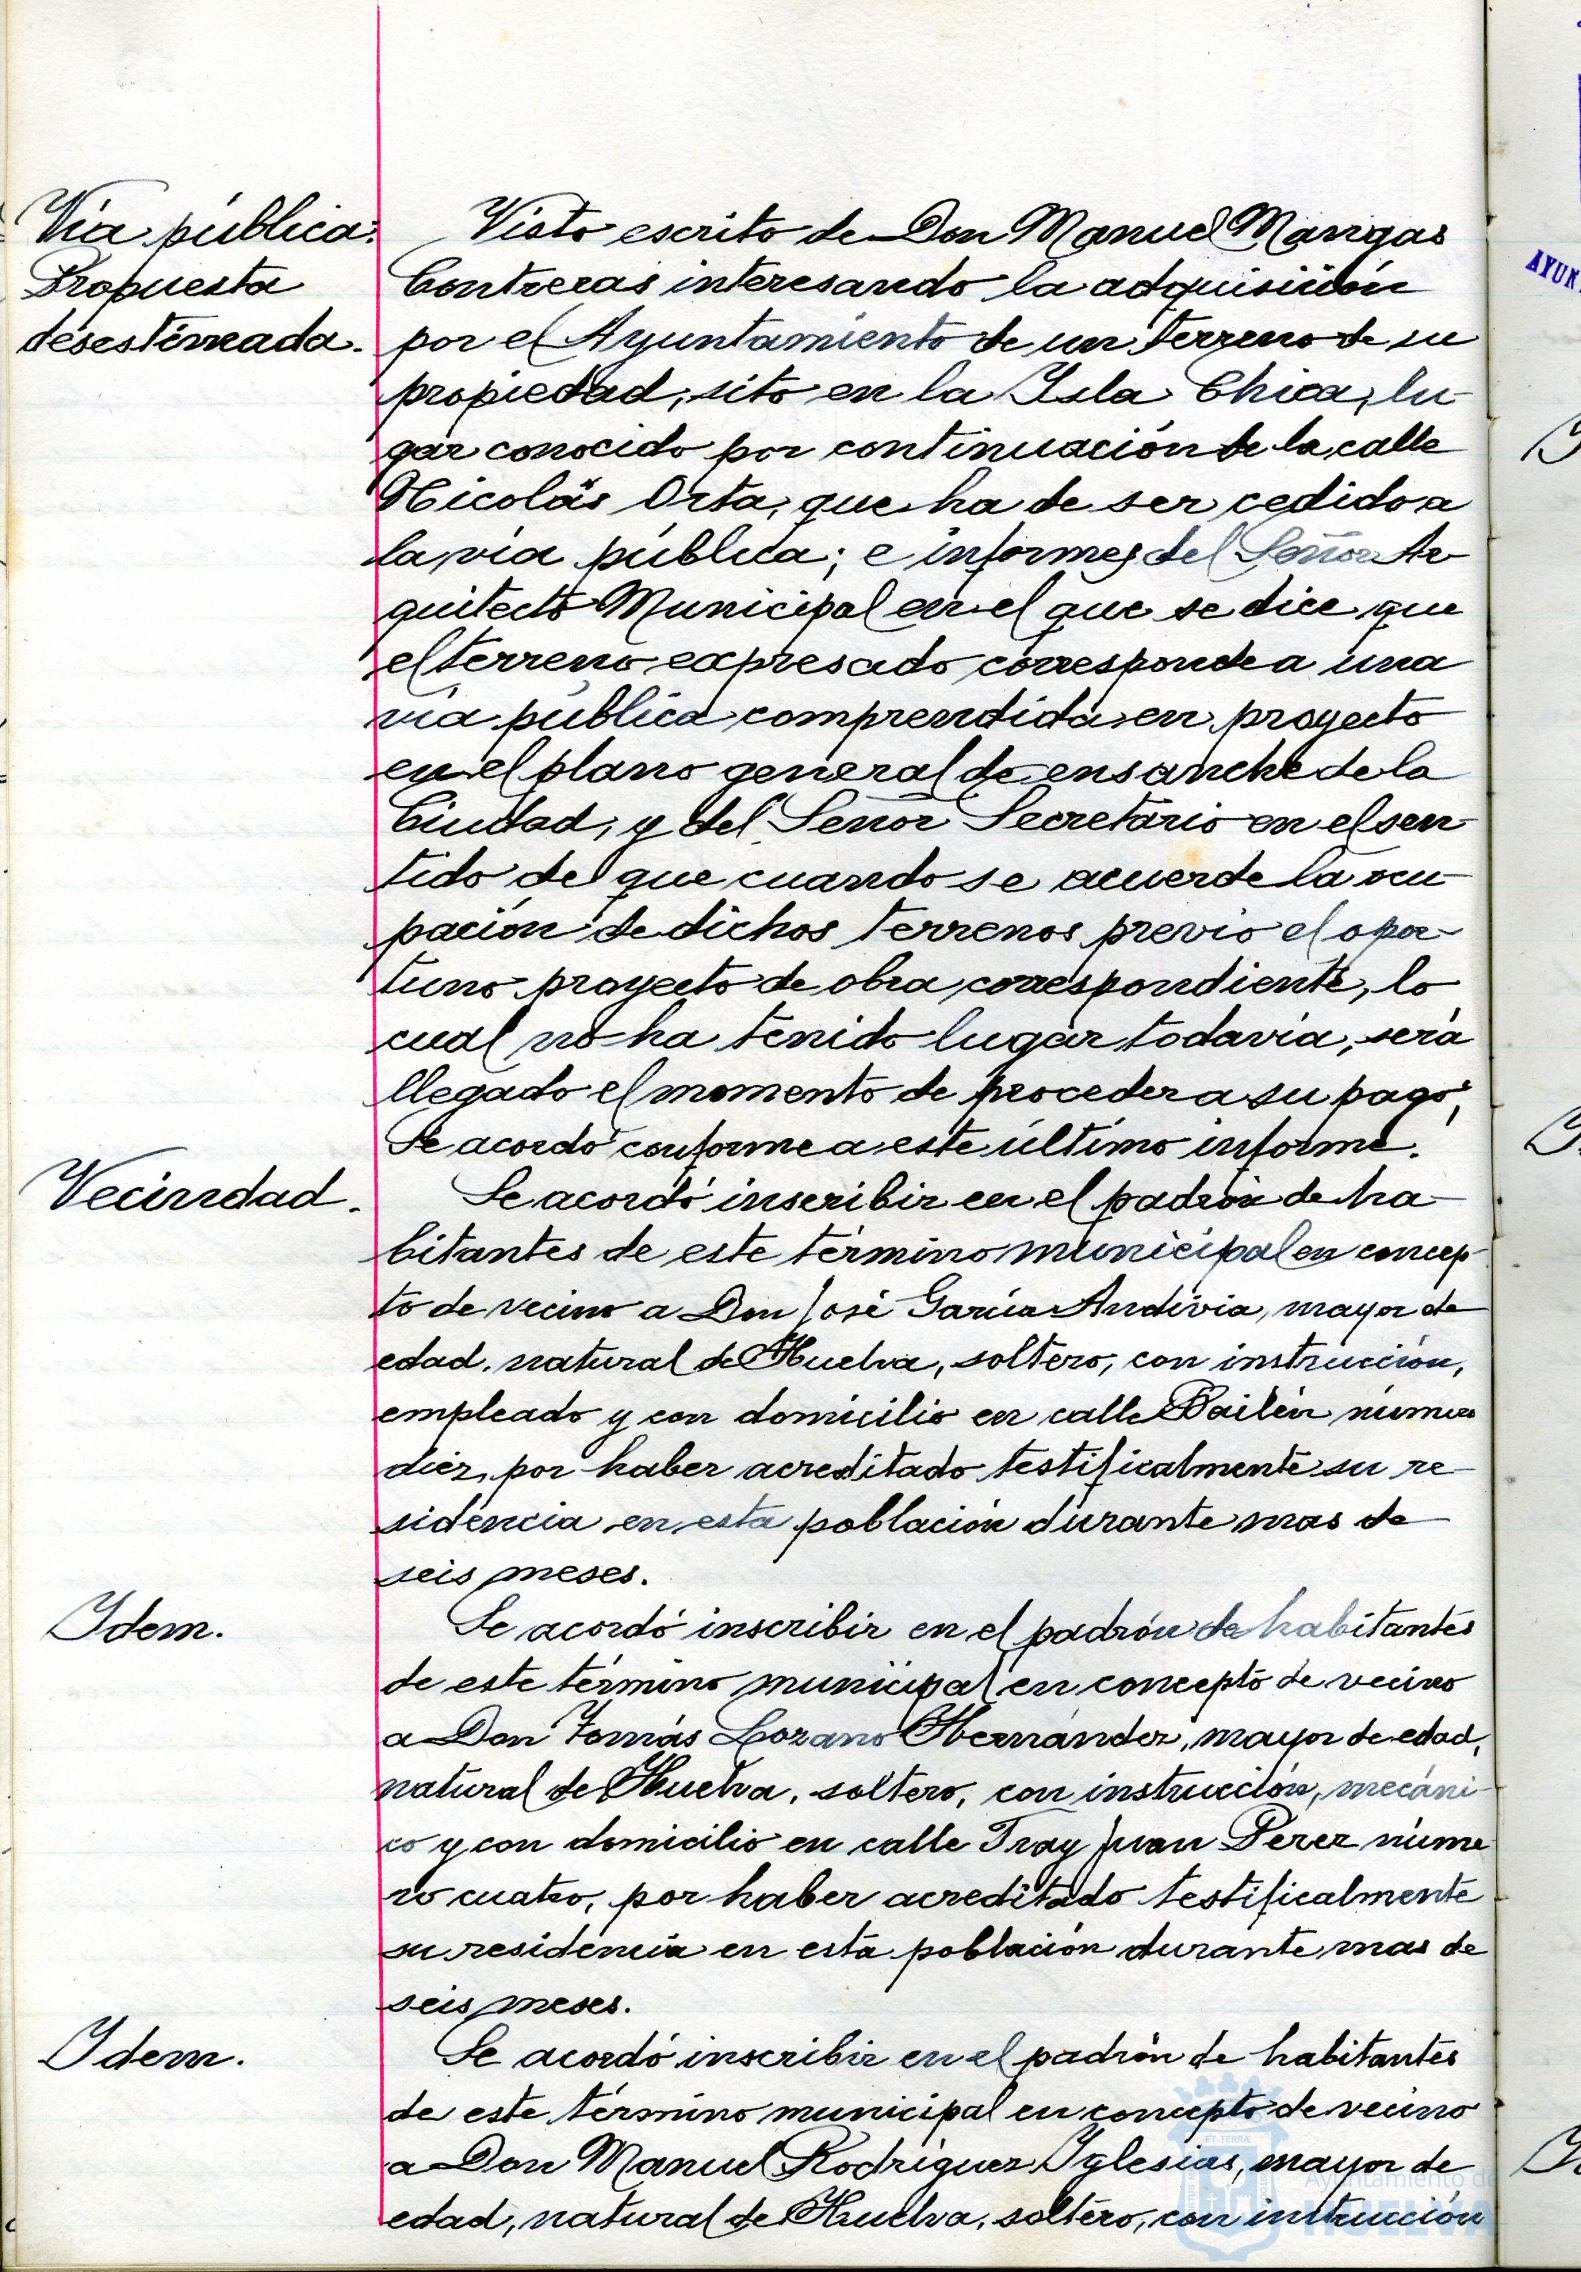 Vía pública:
Propuesta
desestimada.
Visto escrito de Don Manuel Mangas
Contreras interesando la adquisición
por el Ayuntamiento de un terreno de su
propiedad, sito en la Isla Chica, lu-
gar conocido por continuación de la calle
Nicolás Orta, que ha de ser cedido a
la vía pública; e informes del Señor Ar-
quitecto Municipal en el que se dice que
el terreno expresado corresponde a una
vía pública comprendida en proyecto
en el plano general de ensanche de la
Ciudad, y del Señor Secretario en el sen-
tido de que cuando se acuerde la ocu-
pación de dichos terrenos previo el opor-
tuno proyecto de obra correspondiente, lo
cual no ha tenido lugar todavía, será
llegado el momento de proceder a su pago,
Se acordó conforme a este último informe.
Vecindad.
Se acordó inscribir en el padrón de ha-
bitantes de este término municipal en concep-
to de vecino a Don José García Andivia, mayor de
edad, natural de Huelva, soltero, con instrucción,
empleado y con domicilio en calle Bailén número
diez, por haber acreditado testificalmente su re-
sidencia en esta población durante mas de
seis meses.
Idem.
Se acordó inscribir en el padrón de habitantes
de este término municipal en concepto de vecino
a Don Tomás Lozano Hernández, mayor de edad,
natural de Huelva, soltero, con instrucción, mecáni-
co y con domicilio en calle Fray Juan Perez núme-
ro cuatro, por haber acreditado testificalmente
su residencia en esta población durante mas de
seis meses.
Idem.
Se acordó inscribir en el padrón de habitantes
de este término municipal en concepto de vecino
a Don Manuel Rodríguez Iglesias, mayor de
edad, natural de Huelva, soltero, con instrucción
AYUN
Ayuntamiento de
HUELVA